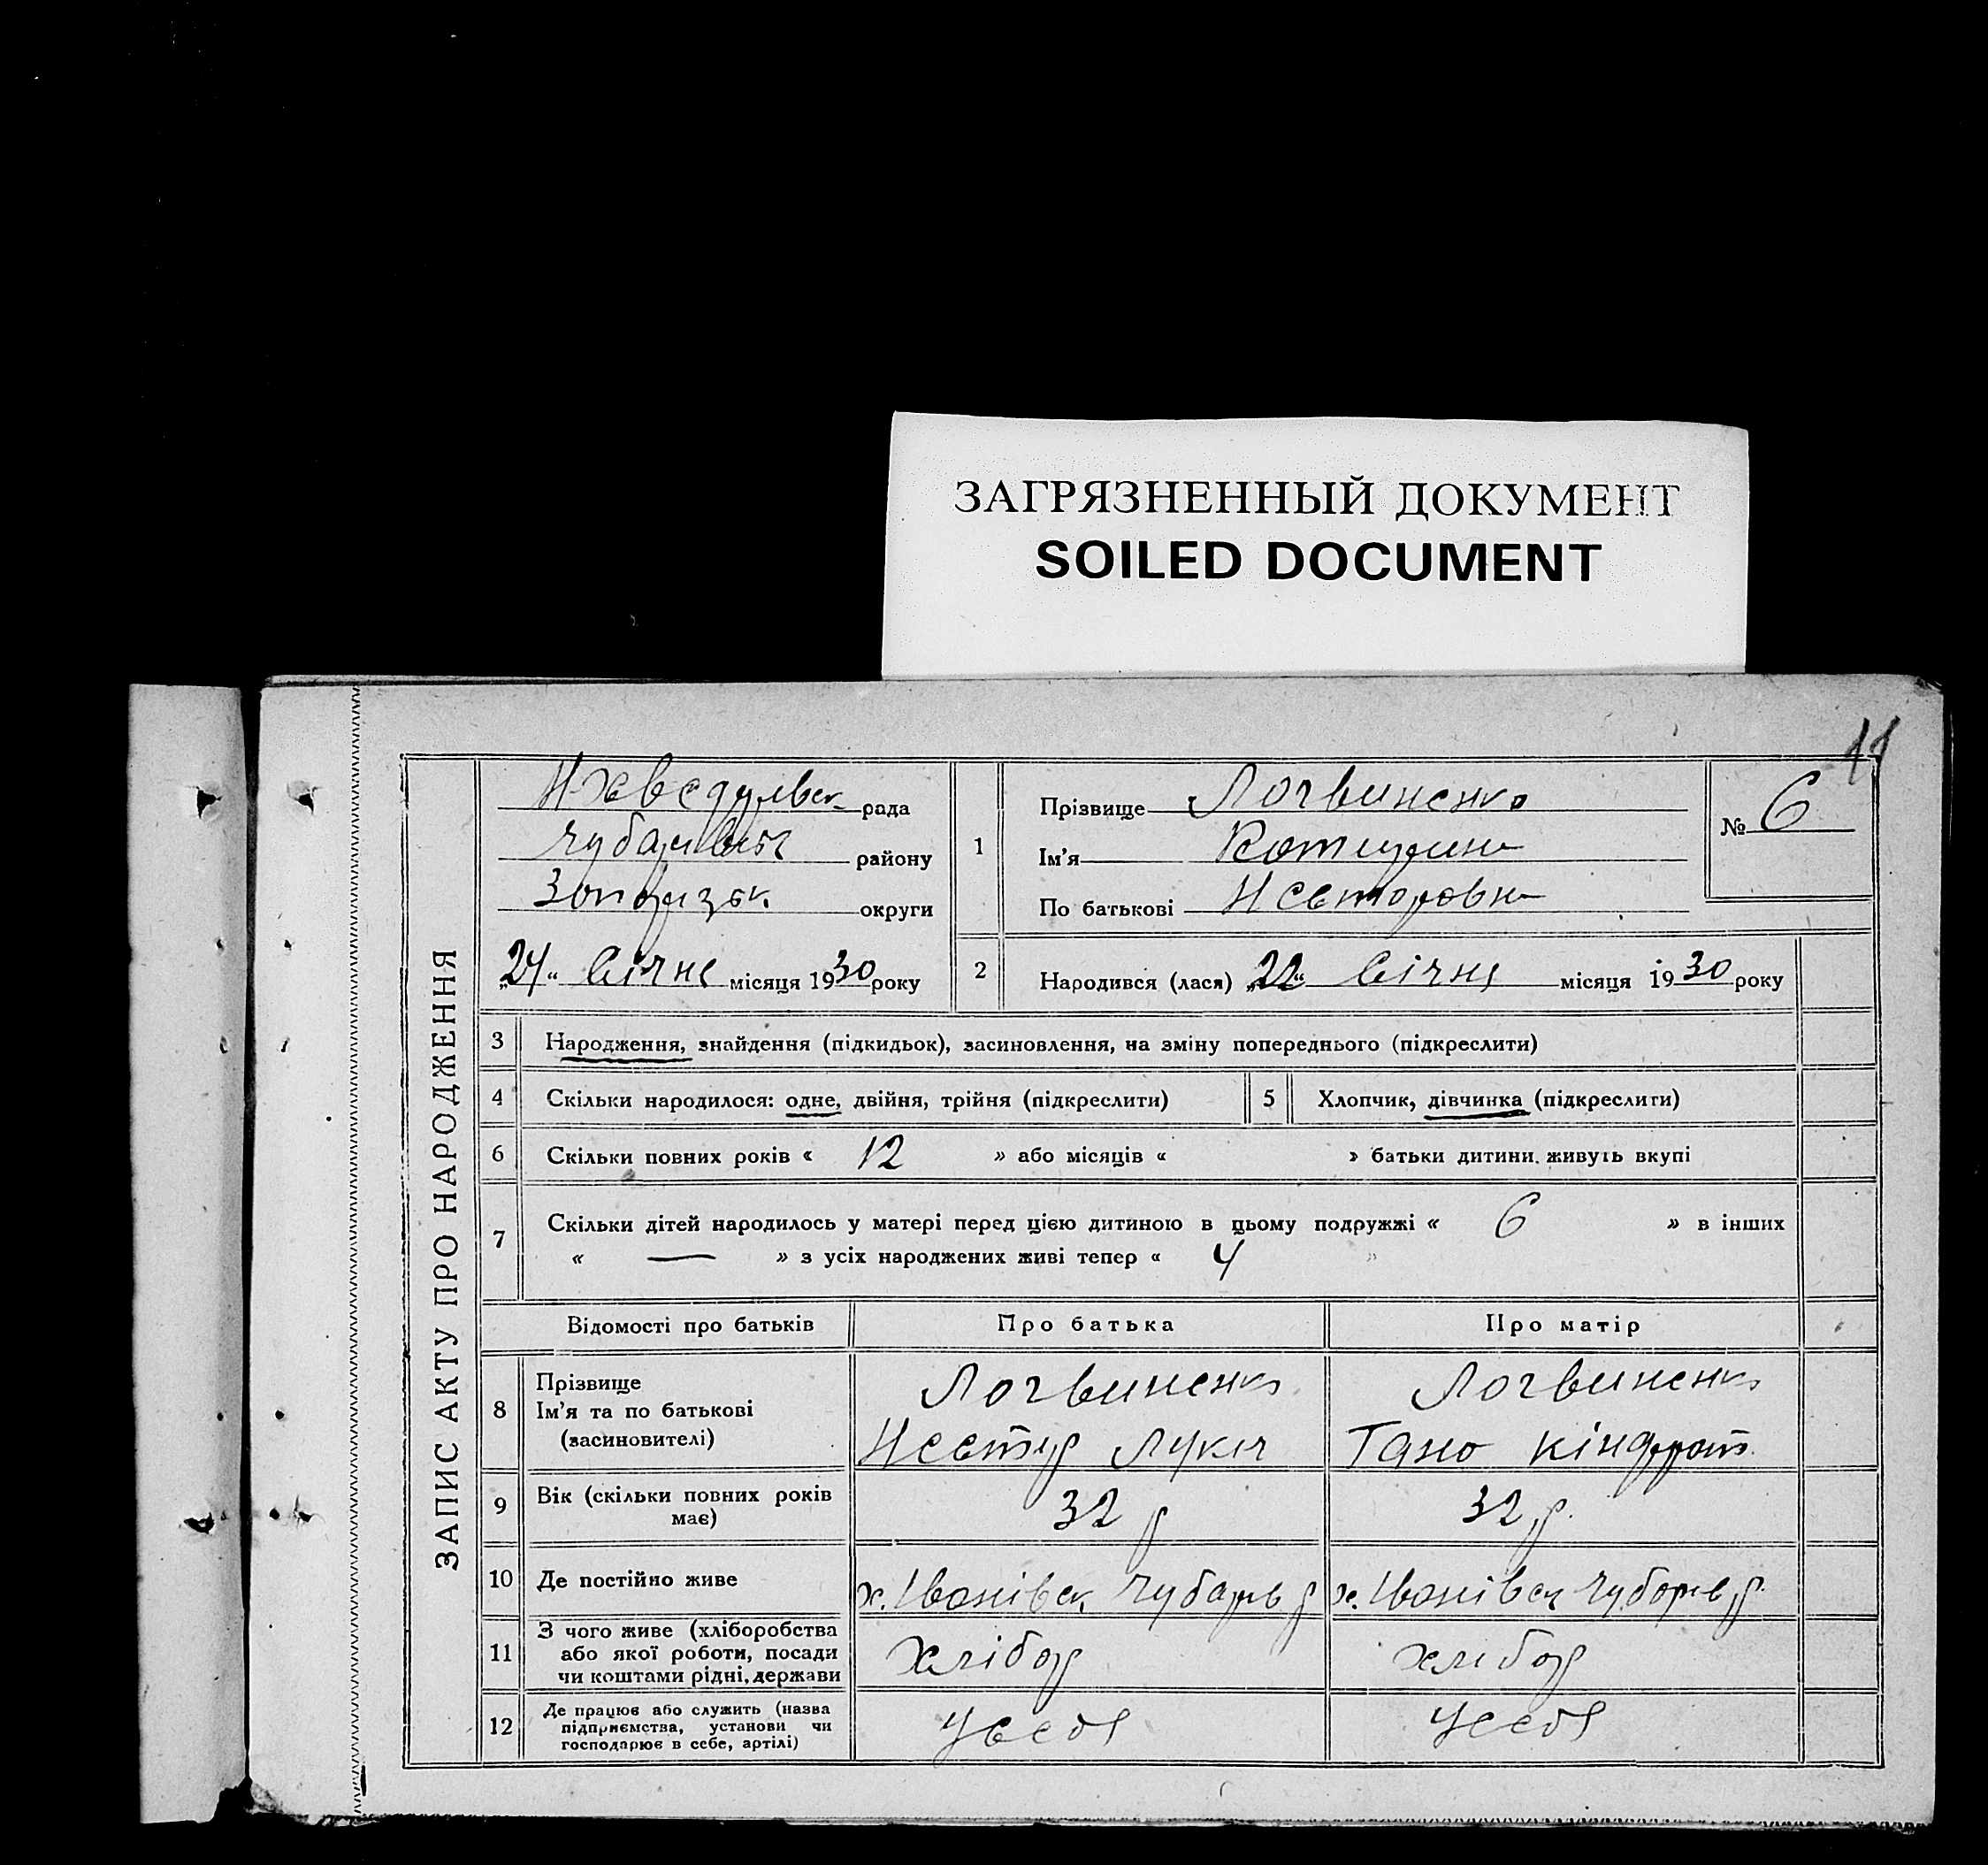 ЗАГРЯЗНЕННЫЙ ДОКУМЕНТ
SOILED DOCUMENT
11
ЗАПИС АКТУ ПРО НАРОДЖЕННЯ
рада
району
округи
„24“ Січня місяця 1930 року
1
Прізвище Логвиненко
Ім’я Катерина
По батькові Несторовна
№ 6
2 Народився (лася) „22“ Січня місяця 1930 року
3 Народження, знайдення (підкидьок), засиновлення, на зміну попереднього (підкреслити)
4 Скільки народилося: одне, двійня, трійня (підкреслити) 5 Хлопчик, дівчинка (підкреслити)
6 Скільки повних років « 12 » або місяців « » батьки дитини живуть вкупі
7 Скільки дітей народилось у матері перед цією дитиною в цьому подружжі « 6 » в інших
« — » з усіх народжених живі тепер « 4 »
Відомості про батьків Про батька Про матір
8 Прізвище
Ім’я та по батькові
(засиновителі)
Логвиненко
Нестур Лукич
Логвиненко
Кіндрат.
9 Вік (скільки повних років
має)
32 р
32 р.
10 Де постійно живе х. Іванівск Чубарів р х. Іванівск Чубарів р.
11 З чого живе (хліборобства
або якої роботи, посади
чи коштами рідні, держави
хлібор
хлібор
12 Де працює або служить (назва
підприємства, установи чи
господарює в себе, артілі)
Усебя
Усебя